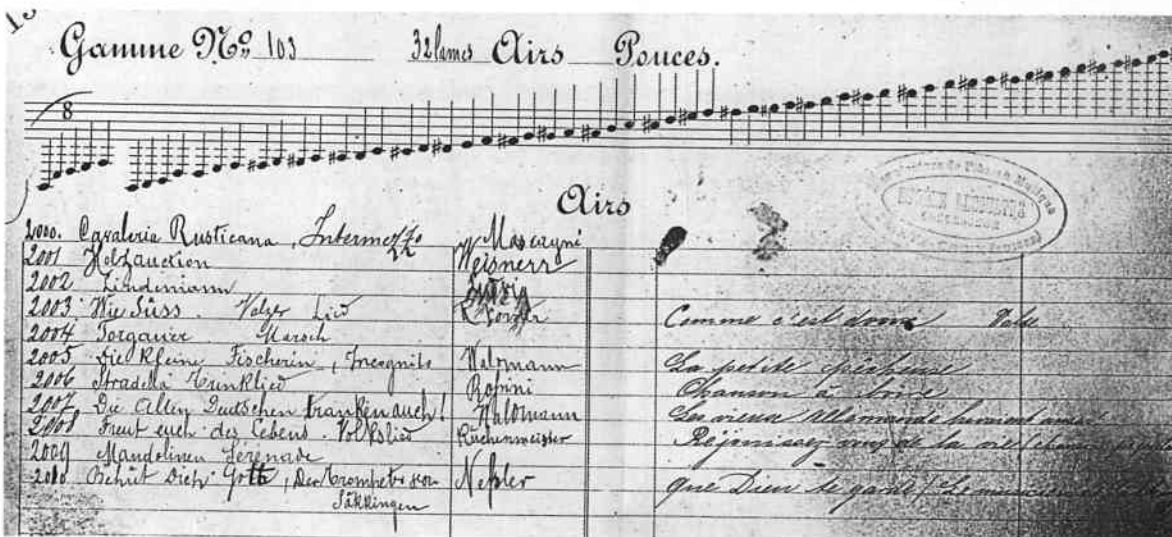 Gamme No 103 32 lames Airs Pouces.
8
Airs
2000. Cavaleria Rusticana, Intermezzo Mascagni
2001 Holzauction Meisnerr
2002 Lindemann
2003. Wie Süss. Valzer Lied Comme c'est doux Valse
2004 Torgauer Marsch
2005 Die Kleine Fischerin, Incognito Waldmann La petite pêcheuse
2006 Stradella Trunklied Rossini Chanson à boire
2007. Die Alten Deutschen tranken auch! Waldmann Les vieux allemands buvaient aussi
2008 Freut euch des Lebens. Volkslied Küchenmeister Réjouissez vous de la vie
2009 Mandolinen Serenade
2010 Behüt Dich Gott, Der Trompeter von Neßler Que Dieu te garde
Säkkingen